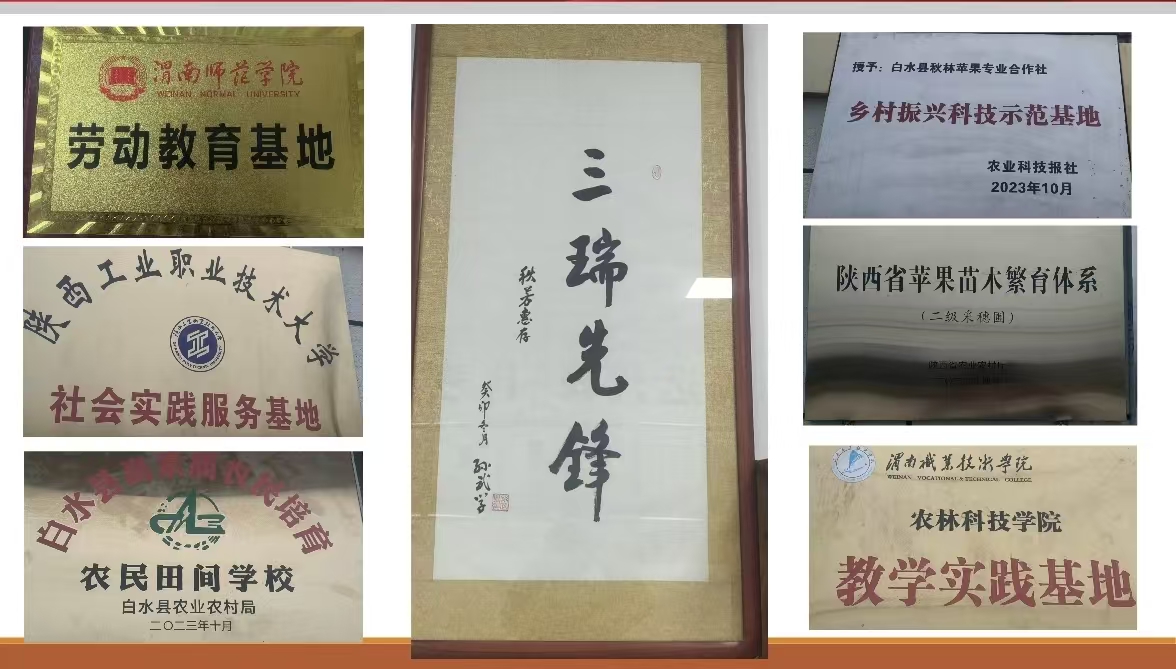 渭南师范学院
WEINAN NORMAL UNIVERSITY
劳动教育基地
陕西工业职业技术大学
社会实践服务基地
白水县高素质农民培育
农民田间学校
白水县农业农村局
二〇二三年十月
三瑞先锋
秋芳惠存
癸卯冬月
孙武学
授予：白水县秋林苹果专业合作社
乡村振兴科技示范基地
农业科技报社
2023年10月
陕西省苹果苗木繁育体系
（二级采穗圃）
陕西省农业农村厅
渭南职业技术学院
WEINAN VOCATIONAL & TECHNICAL COLLEGE
农林科技学院
教学实践基地